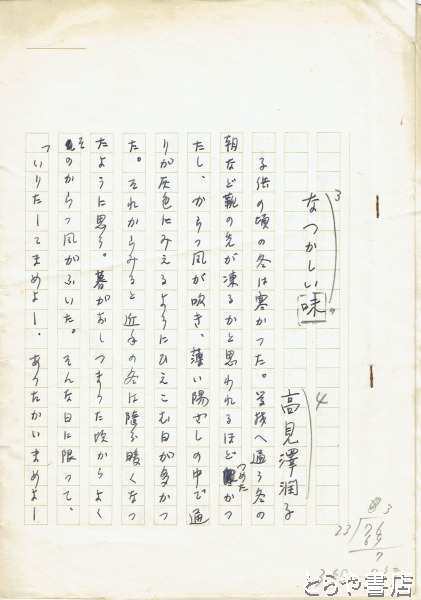 3
なつかしい味
4
高見澤潤子
子供の頃の冬は寒かった。学校へ通う冬の
朝など靴の先が凍るかと思われるほどつめたかっ
たし、からっ風が吹き、薄い陽ざしの中で通
りが灰色にみえるようにひえこむ日が多かっ
た。それからみると近年の冬は随分暖くなっ
たように思う。暮がおしつまった頃からよく
そのからっ風がふいた。そんな日に限って、
「いりたてまめよー、あったかいまめよー
3
23)76
69
7
とらや書店